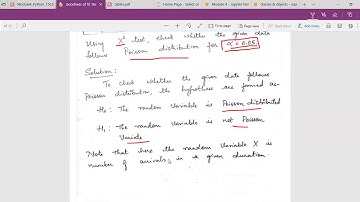 Module4_Python_15CS
Goodness of fit Tes
tables.pdf
Home Page - Select o
Module 4 - Jupyter Not
classes & objects - Jup
Using X² test, check whether the given data
follows Poisson distribution for α = 0.05
Solution:
To check whether the given data follows
Poisson distribution, the hypothesis are formed as-
H₀: The random variable is Poisson distributed
H₁: The random variable is not Poisson
Variate
Note that here the random variable X is
number of arrivals, in a given duration